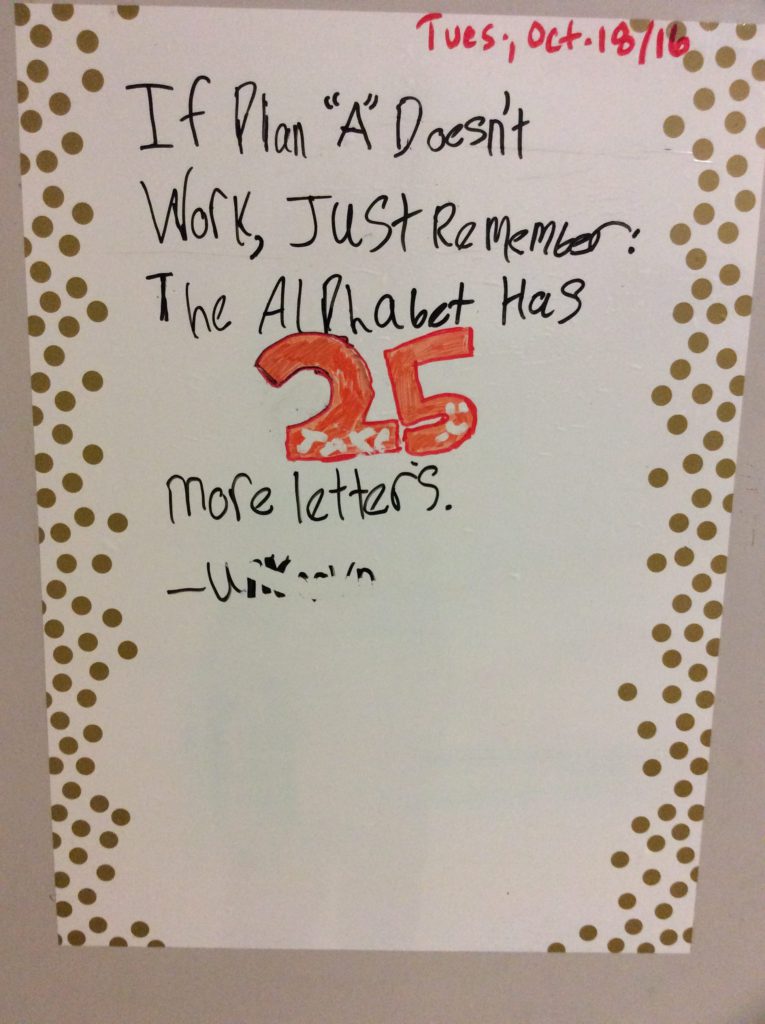 Tues., Oct. 18/16
If Plan "A" Doesn't
Work, Just Remember:
The Alphabet Has
25
more letters.
-Unknown